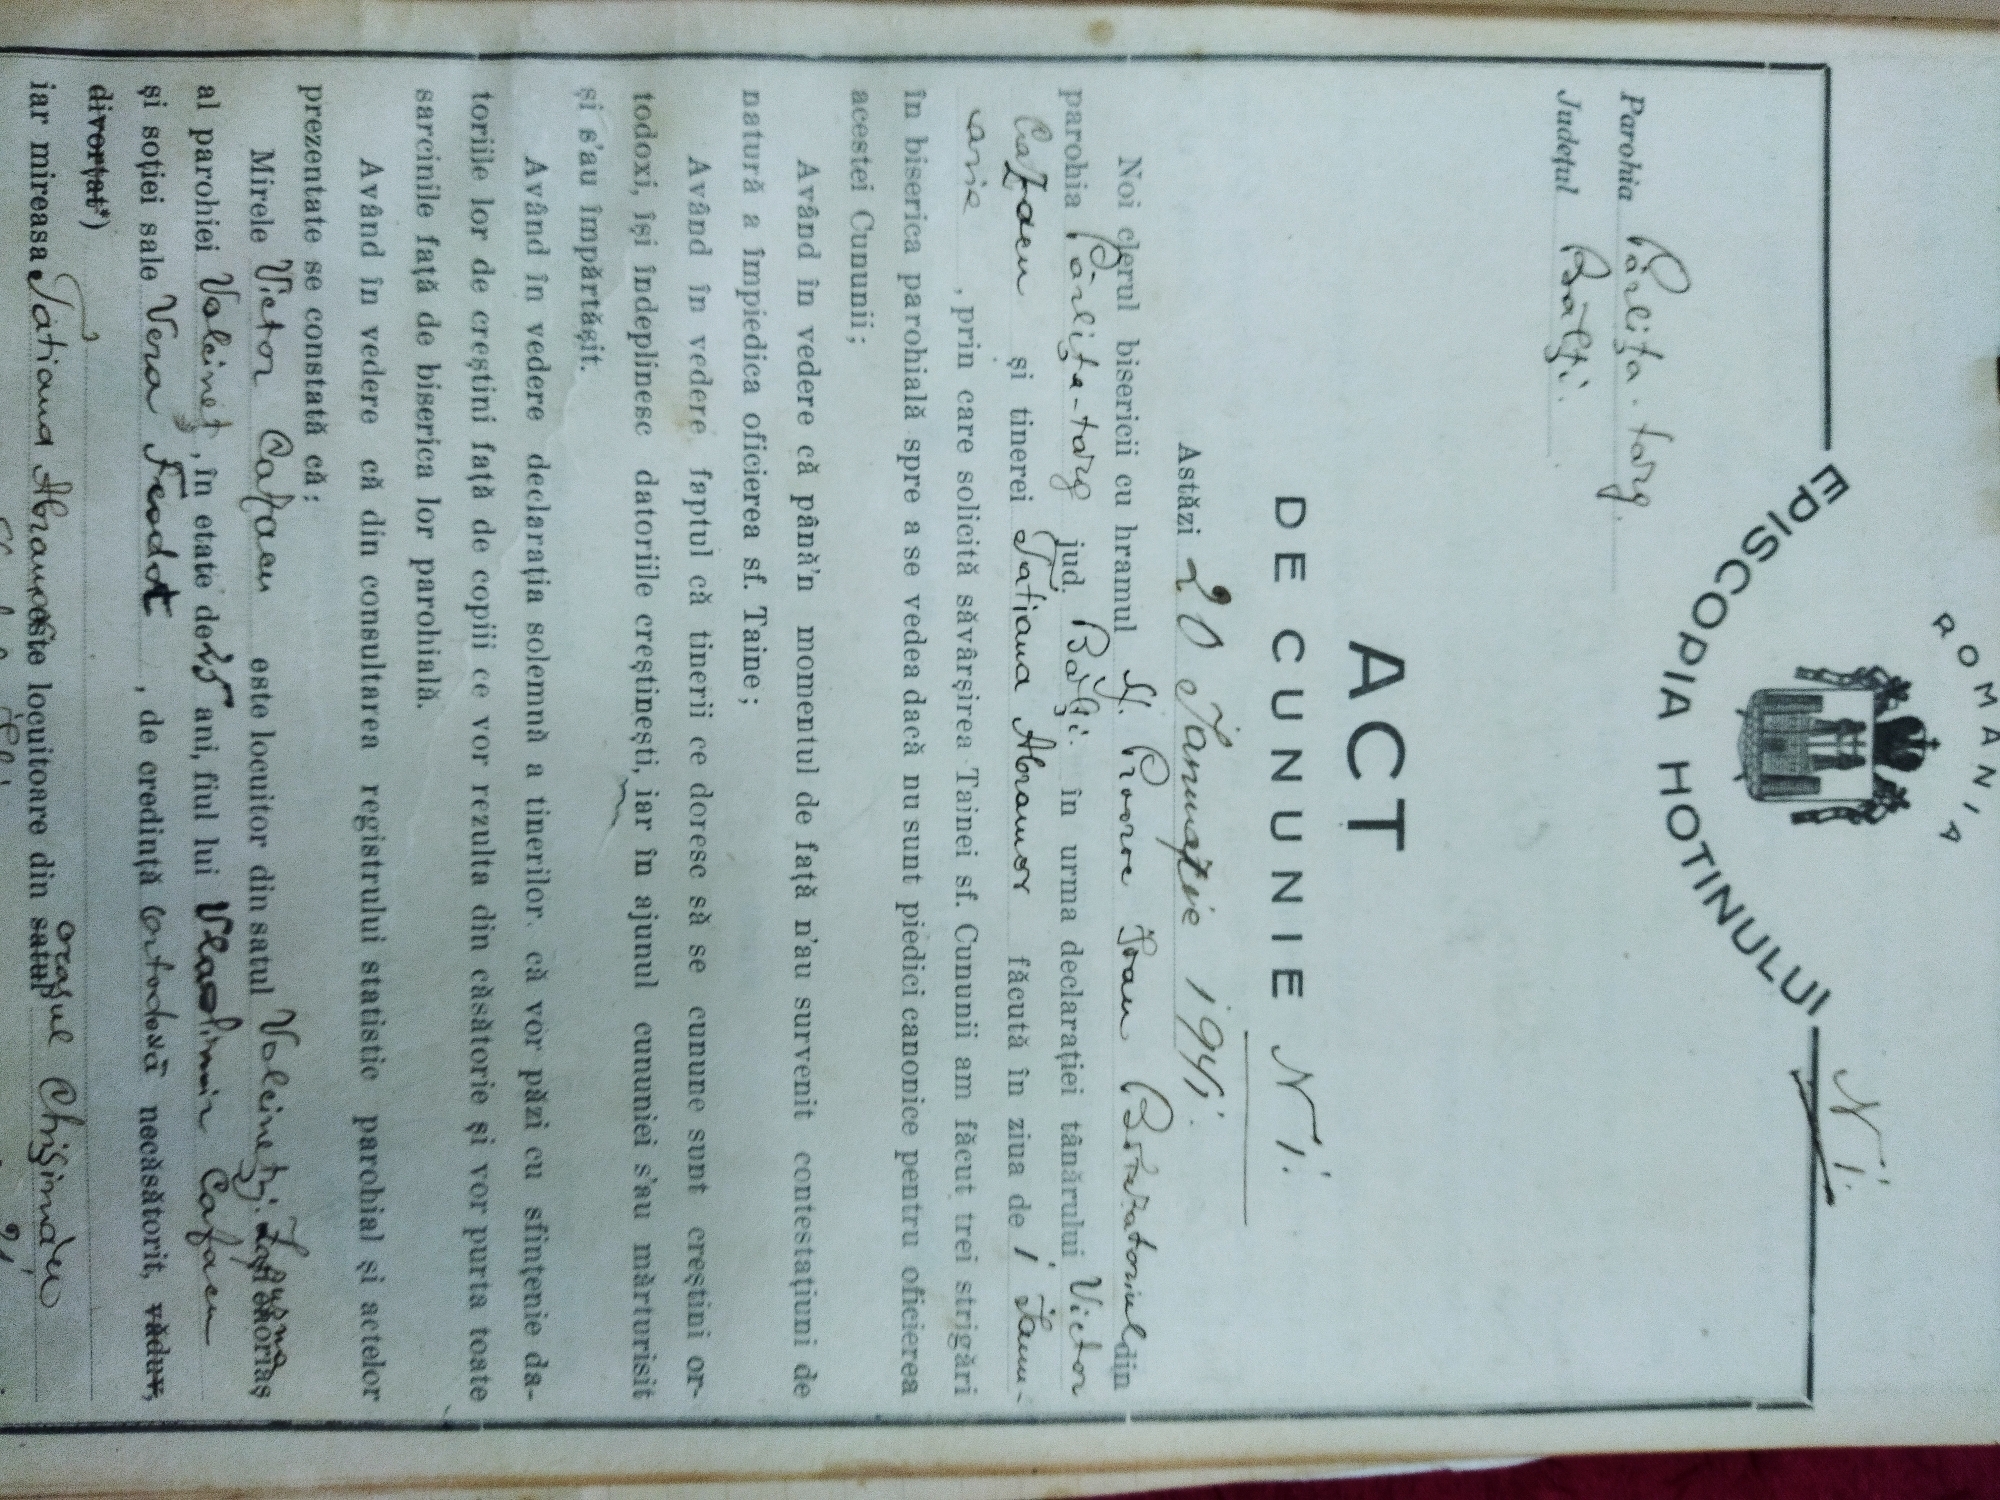 ROMÂNIA
EPISCOPIA HOTINULUI
N 1.
Parohia Pârlița-targ.
Județul Bălți.
ACT
DE CUNUNIE N 1.
Astăzi 20 Ianuarie 1941.
Noi clerul bisericii cu hramul Sf. Proroc Ioan Botezatorul din
parohia Pârlița-targ jud. Bălți. în urma declarației tânărului Victor
Cazacu și tinerei Tatiana Abramov făcută în ziua de 1 Ianu-
arie , prin care solicită săvârșirea Tainei sf. Cununii am făcut trei strigări
în biserica parohială spre a se vedea dacă nu sunt piedici canonice pentru oficierea
acestei Cununii;
Având în vedere că până'n momentul de față n'au survenit contestațiuni de
natură a împiedica oficierea sf. Taine;
Având în vedere faptul că tinerii ce doresc să se cunune sunt creștini or-
todoxi, își îndeplinesc datoriile creștinești, iar în ajunul cununiei s'au mărturisit
și s'au împărtășit.
Având în vedere declarația solemnă a tinerilor că vor păzi cu sfințenie da-
toriile lor de creștini față de copiii ce vor rezulta din căsătorie și vor purta toate
sarcinile față de biserica lor parohială.
Având în vedere că din consultarea registrului statistic parohial și actelor
prezentate se constată că:
Mirele Victor Cazacu este locuitor din satul Volcineț j. enoriaș
al parohiei Volcineț, în etate de 25 ani, fiul lui Vladimir Cazacu
și soției sale Vera Feodot , de credință ortodoxă necăsătorit, văduv,
divorțat*)
orașul
iar mireasa Tatiana Abramov este locuitoare din satul Chișinău